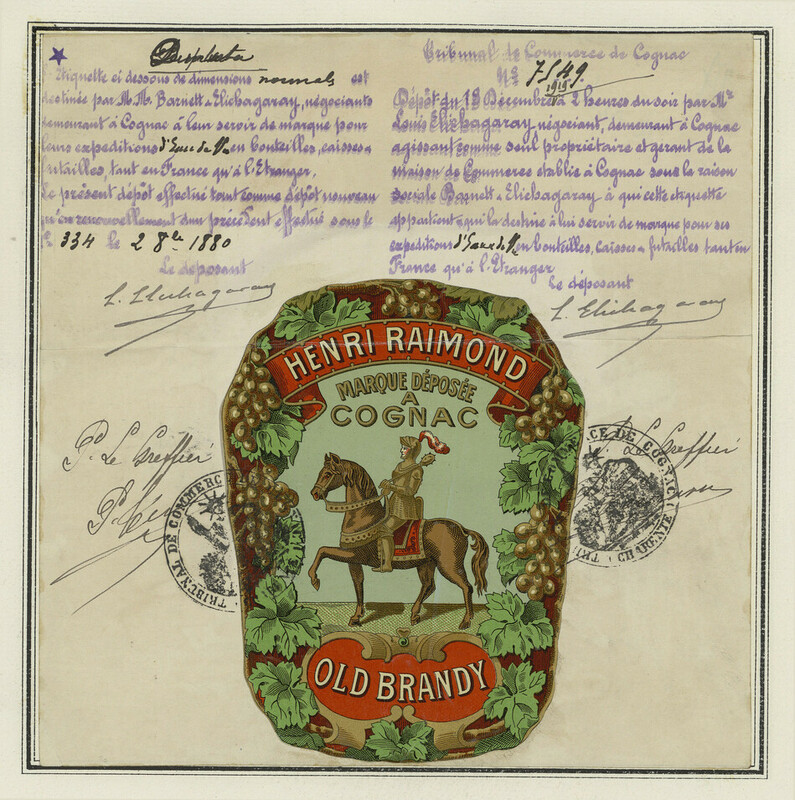 Duplicata
L'Etiquette ci dessous de dimensions normales est
destinée par M.M. Barnett & Elichagaray, négociants
demeurant à Cognac à leur servir de marque pour
leurs expeditions d'Eaux de Vie en bouteilles, caisses &
futailles, tant en France qu'à l'Etranger.
Le présent dépôt effectué tout comme dépôt nouveau
qu'en renouvellement d'un précédent effectué sous le
N° 334 le 2 8bre 1880
Le déposant
L. Elichagaray
Tribunal de Commerce de Cognac
N° 7549
Dépôt du 13 Décembre à 2 heures du soir par Mr
Louis Elichagaray négociant, demeurant à Cognac
agissant comme seul propriétaire et gerant de la
maison de Commerce etablie à Cognac sous la raison
sociale Barnett & Elichagaray à qui cette etiquette
appartient & qui la destine à lui servir de marque pour ses
expeditions d'Eaux de Vie en bouteilles, caisses & futailles tant en
France qu'à l'Etranger
le déposant
L. Elichagaray
HENRI RAIMOND
MARQUE DÉPOSÉE
A
COGNAC
OLD BRANDY
P. Le Greffier
TRIBUNAL DE COMMERC
Le Greffier
CE DE COGNAC
TRI
CHARENTE